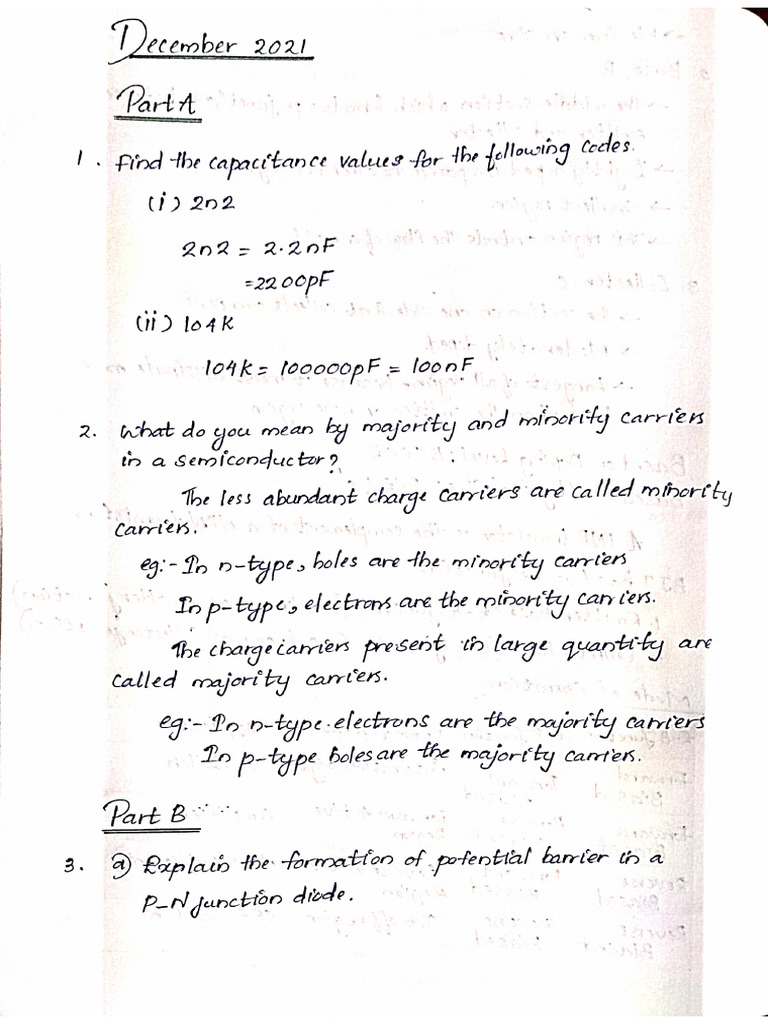 December 2021
Part A
1. Find the capacitance values for the following codes.
(i) 2n2
2n2 = 2.2nF
=2200pF
(ii) 104K
104K = 100000pF = 100nF
2. What do you mean by majority and minority carriers
in a semiconductor?
The less abundant charge carriers are called minority
carriers.
eg:- In n-type, holes are the minority carriers
In p-type, electrons are the minority carriers.
The charge carriers present in large quantity are
called majority carriers.
eg:- In n-type electrons are the majority carriers
In p-type holes are the majority carriers.
Part B
3. a) Explain the formation of potential barrier in a
P-N junction diode.